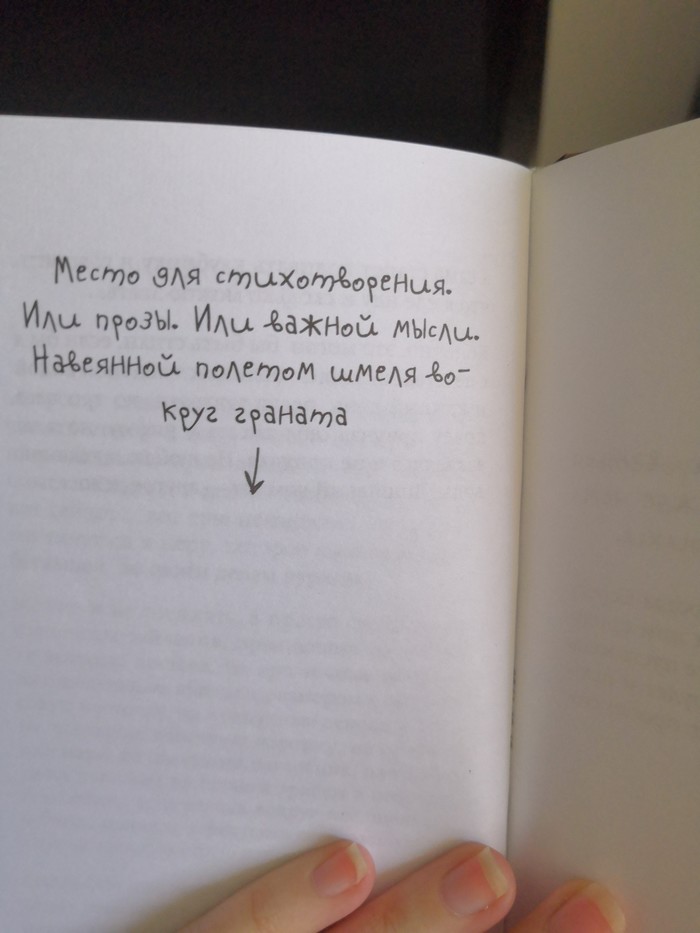 Место для стихотворения.
Или прозы. Или важной мысли.
Навеянной полетом шмеля во-
круг граната